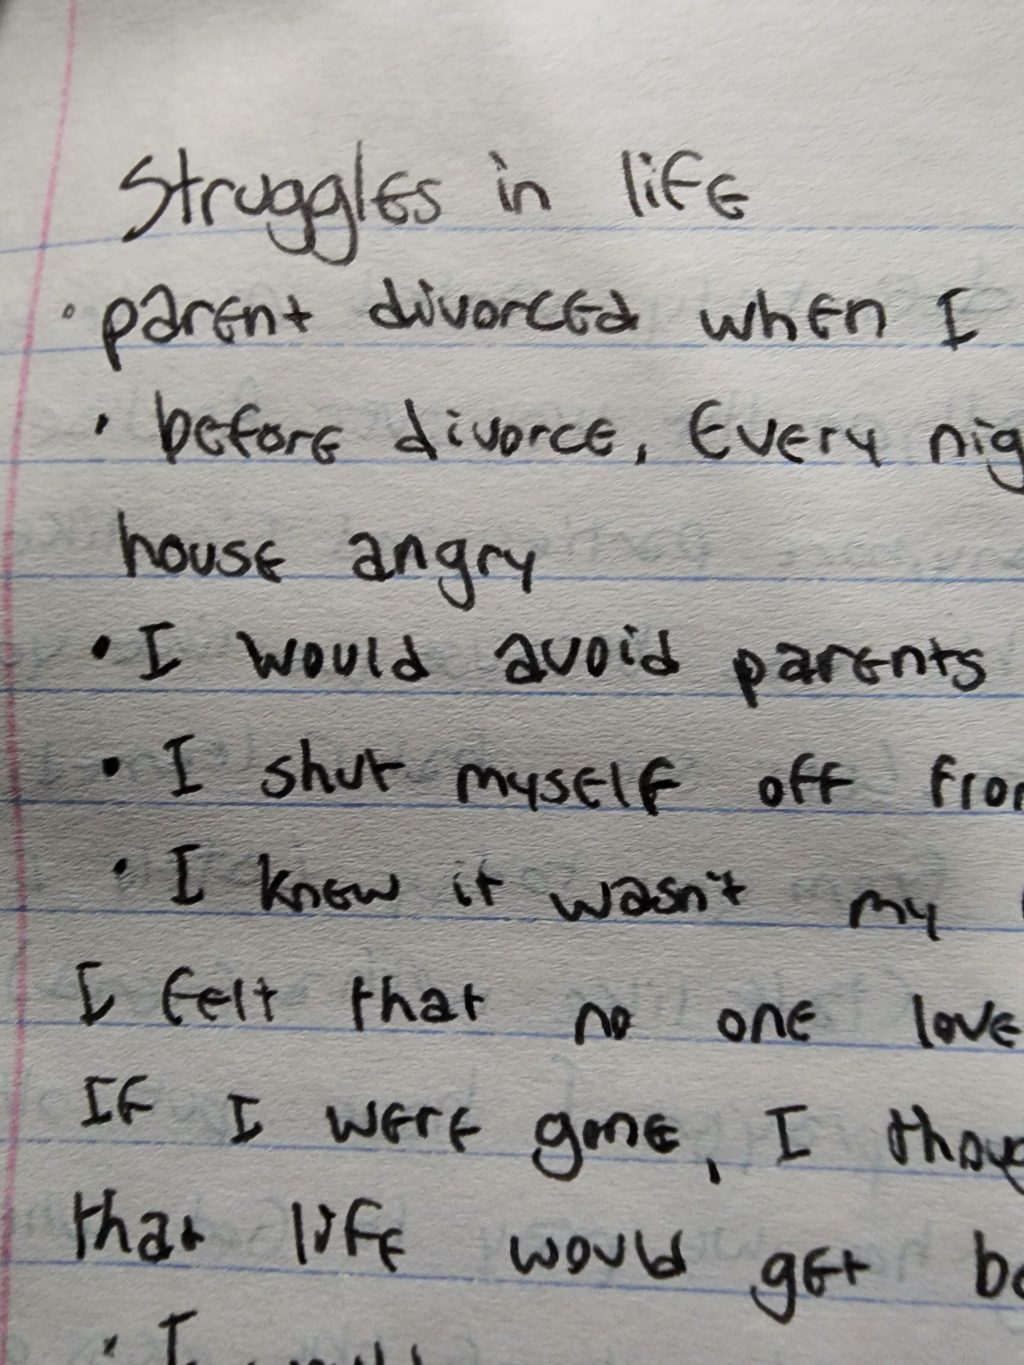 Struggles in life
• parent divorced when I
• before divorce, Every
house angry
• I would avoid parents
• I shut myself off
• I knew it wasn't my
I felt that no one
If I were gone, I
that life would get
• I